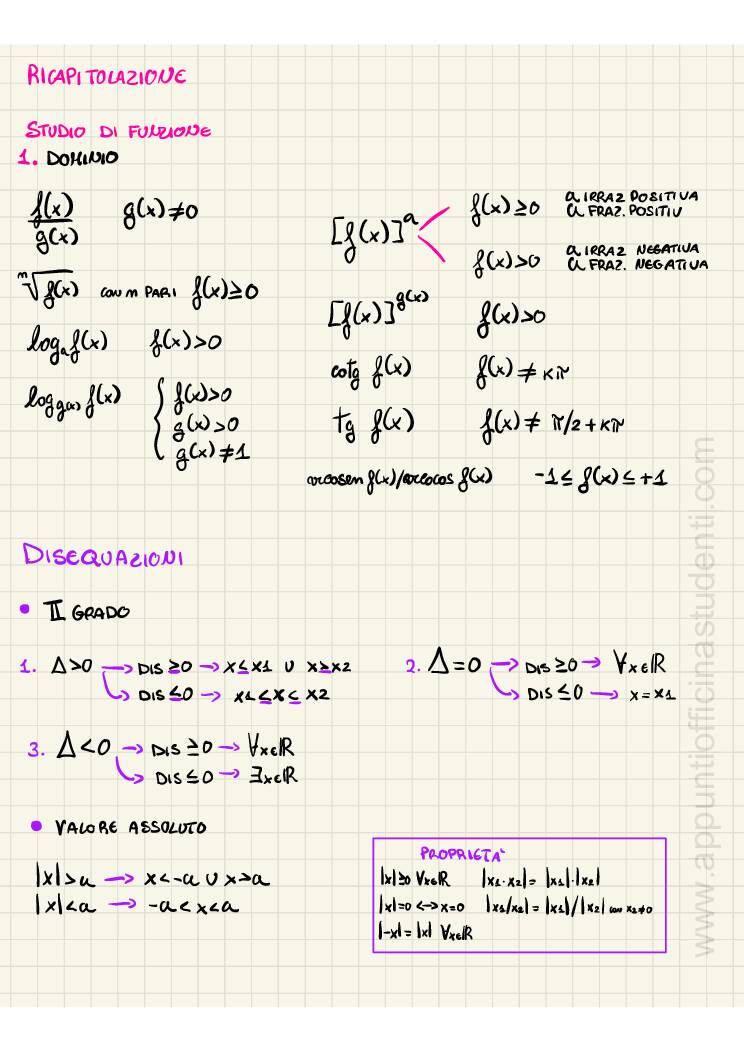 RICAPITOLAZIONE
STUDIO DI FUNZIONE
1. DOMINIO
f(x)/g(x) g(x)≠0
ᵐ√f(x) CON m PARI f(x)≥0
logₐ f(x) f(x)>0
log_g(x) f(x) { f(x)>0
g(x)>0
g(x)≠1
[f(x)]ᵃ f(x)≥0 a IRRAZ POSITIVA
a FRAZ. POSITIV
f(x)>0 a IRRAZ NEGATIVA
a FRAZ. NEGATIVA
[f(x)]^g(x) f(x)>0
cotg f(x) f(x)≠ kπ
tg f(x) f(x)≠ π/2+kπ
arcosen f(x)/arcocos f(x) -1≤ f(x) ≤ +1
DISEQUAZIONI
• II GRADO
1. Δ>0 → DIS ≥0 → x≤x1 ∪ x≥x2
→ DIS ≤0 → x1≤x≤x2
2. Δ=0 → DIS ≥0 → ∀x∈ℝ
→ DIS ≤0 → x=x1
3. Δ<0 → DIS ≥0 → ∀x∈ℝ
→ DIS ≤0 → ∃x∈ℝ
• VALORE ASSOLUTO
|x|>a → x<-a ∪ x>a
|x|<a → -a<x<a
PROPRIETA'
|x|≥0 ∀x∈ℝ |x1·x2|= |x1|·|x2|
|x|=0 ↔ x=0 |x1/x2| = |x1|/|x2| con x2≠0
|-x|= |x| ∀x∈ℝ
www.appuntiofficinastudenti.com